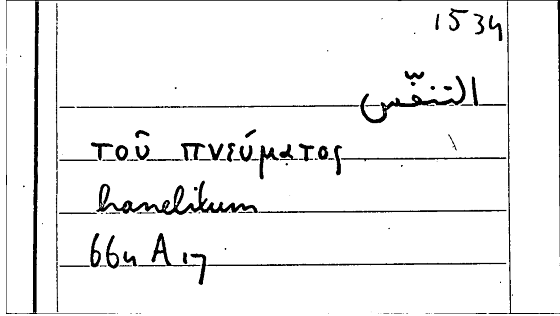 1534
التنفّس
τοῦ πνεύματος
hanelikum
664 A 17